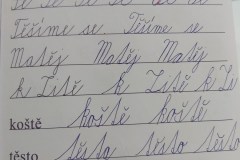 Těšíme se. Těšíme se
Matěj Matěj Matěj
k Zitě k Zitě k Zi
koště koště koště
těsto těsto těsto těsto